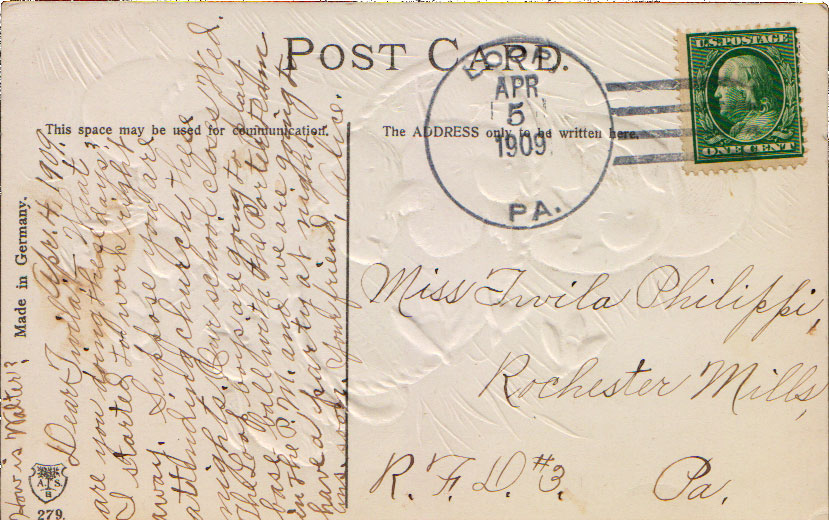 POST CARD.
This space may be used for communication.
The ADDRESS only to be written here.
U.S. POSTAGE
ONE CENT
APR
5
1909
PA.
Made in Germany.
Apr. 4, 1909.
Dear Twila; What
are you doing these days?
I started to work right
away. Suppose you are
attending church these
nights. Our school closes Wed.
The Cook boys are going to play
base ball with the Porter team
in the P.M. and we are going to
have a party at night.
ans. soon. Your friend, Alice.
How is Walter?
Miss Twila Philippi,
Rochester Mills,
R. F. D. #3. Pa.
A S
B
279.